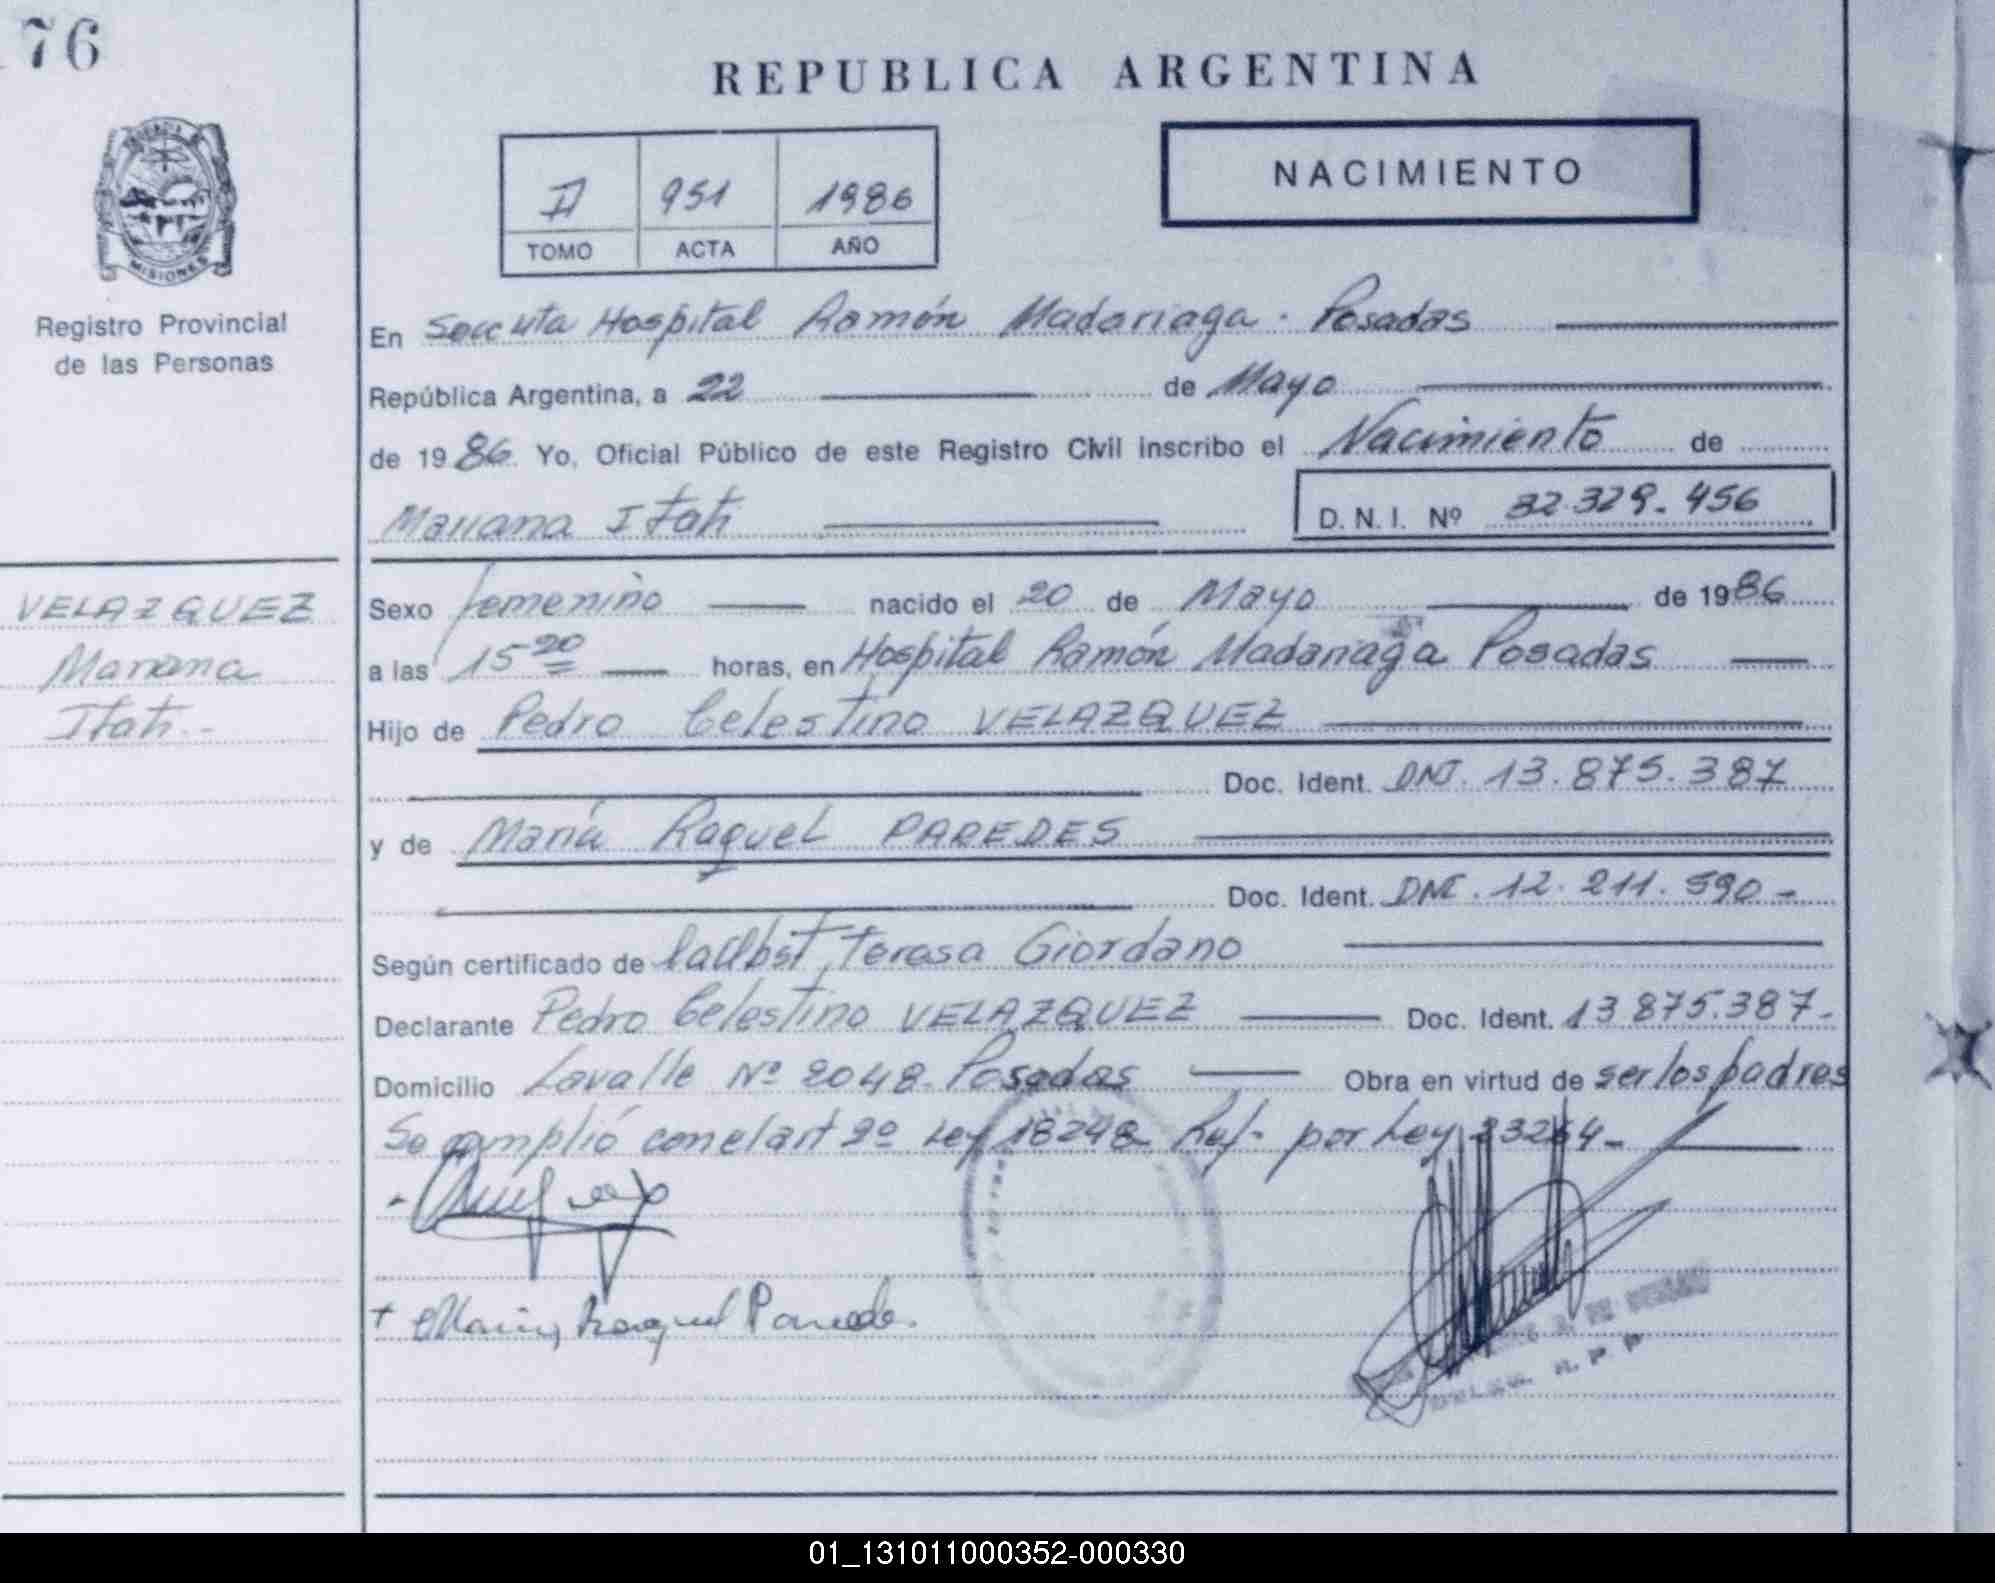 76
REPUBLICA ARGENTINA
MISIONES
Registro Provincial
de las Personas
II 951 1986
TOMO ACTA AÑO
NACIMIENTO
En Secc uta Hospital Ramón Madariaga - Posadas
República Argentina, a 22 de Mayo
de 1986. Yo, Oficial Público de este Registro Civil inscribo el Nacimiento de
Mariana Itatí
D.N.I. Nº 32.329.456
VELAZQUEZ
Mariana
Itatí.-
Sexo femenino nacido el 20 de Mayo de 1986
a las 15 20 horas, en Hospital Ramón Madariaga Posadas
Hijo de Pedro Celestino VELAZQUEZ
Doc. Ident. DNI. 13.875.387
y de María Raquel PAREDES
Doc. Ident. DNI. 12.211.590-
Según certificado de Teresa Giordano
Declarante Pedro Celestino VELAZQUEZ Doc. Ident. 13875.387-
Domicilio Lavalle Nº 2048- Posadas Obra en virtud de ser los padres
Se cumplió con el art 2º Ley 18248- Ref- por Ley 23264-
+ María Raquel Parede.
R. P. P
01_131011000352-000330